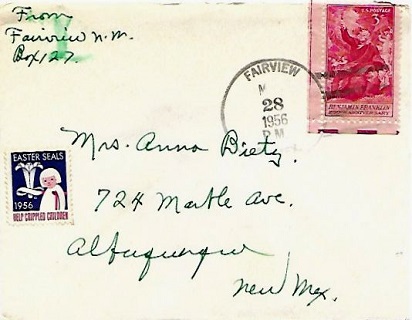 From
Fairview N.M.
Box 127.
U.S. POSTAGE
3¢
BENJAMIN FRANKLIN
250TH ANNIVERSARY
FAIRVIEW
28
1956
P.M
Mrs. Anna Biety
724 Marble Ave.
Albuquerque
New Mex.
EASTER SEALS
1956
HELP CRIPPLED CHILDREN